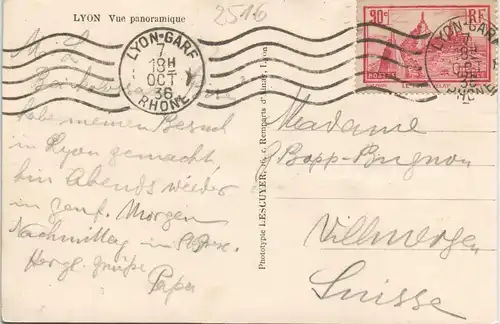 LYON Vue panoramique
2516
LYON-GARE
7
18H
OCT
36
RHÔNE
90c
RF
POSTES
LE
M. L.
habe meinen Besuch
in Lyon gemacht,
bin Abends wieder
in Genf. Morgen
Nachmittag in
Hergl. Grüße
Papa
Phototypie LESCUYER, Remparts d'Ainay, Lyon
Madame
Bopp-Bugnon
Villmergen
Suisse